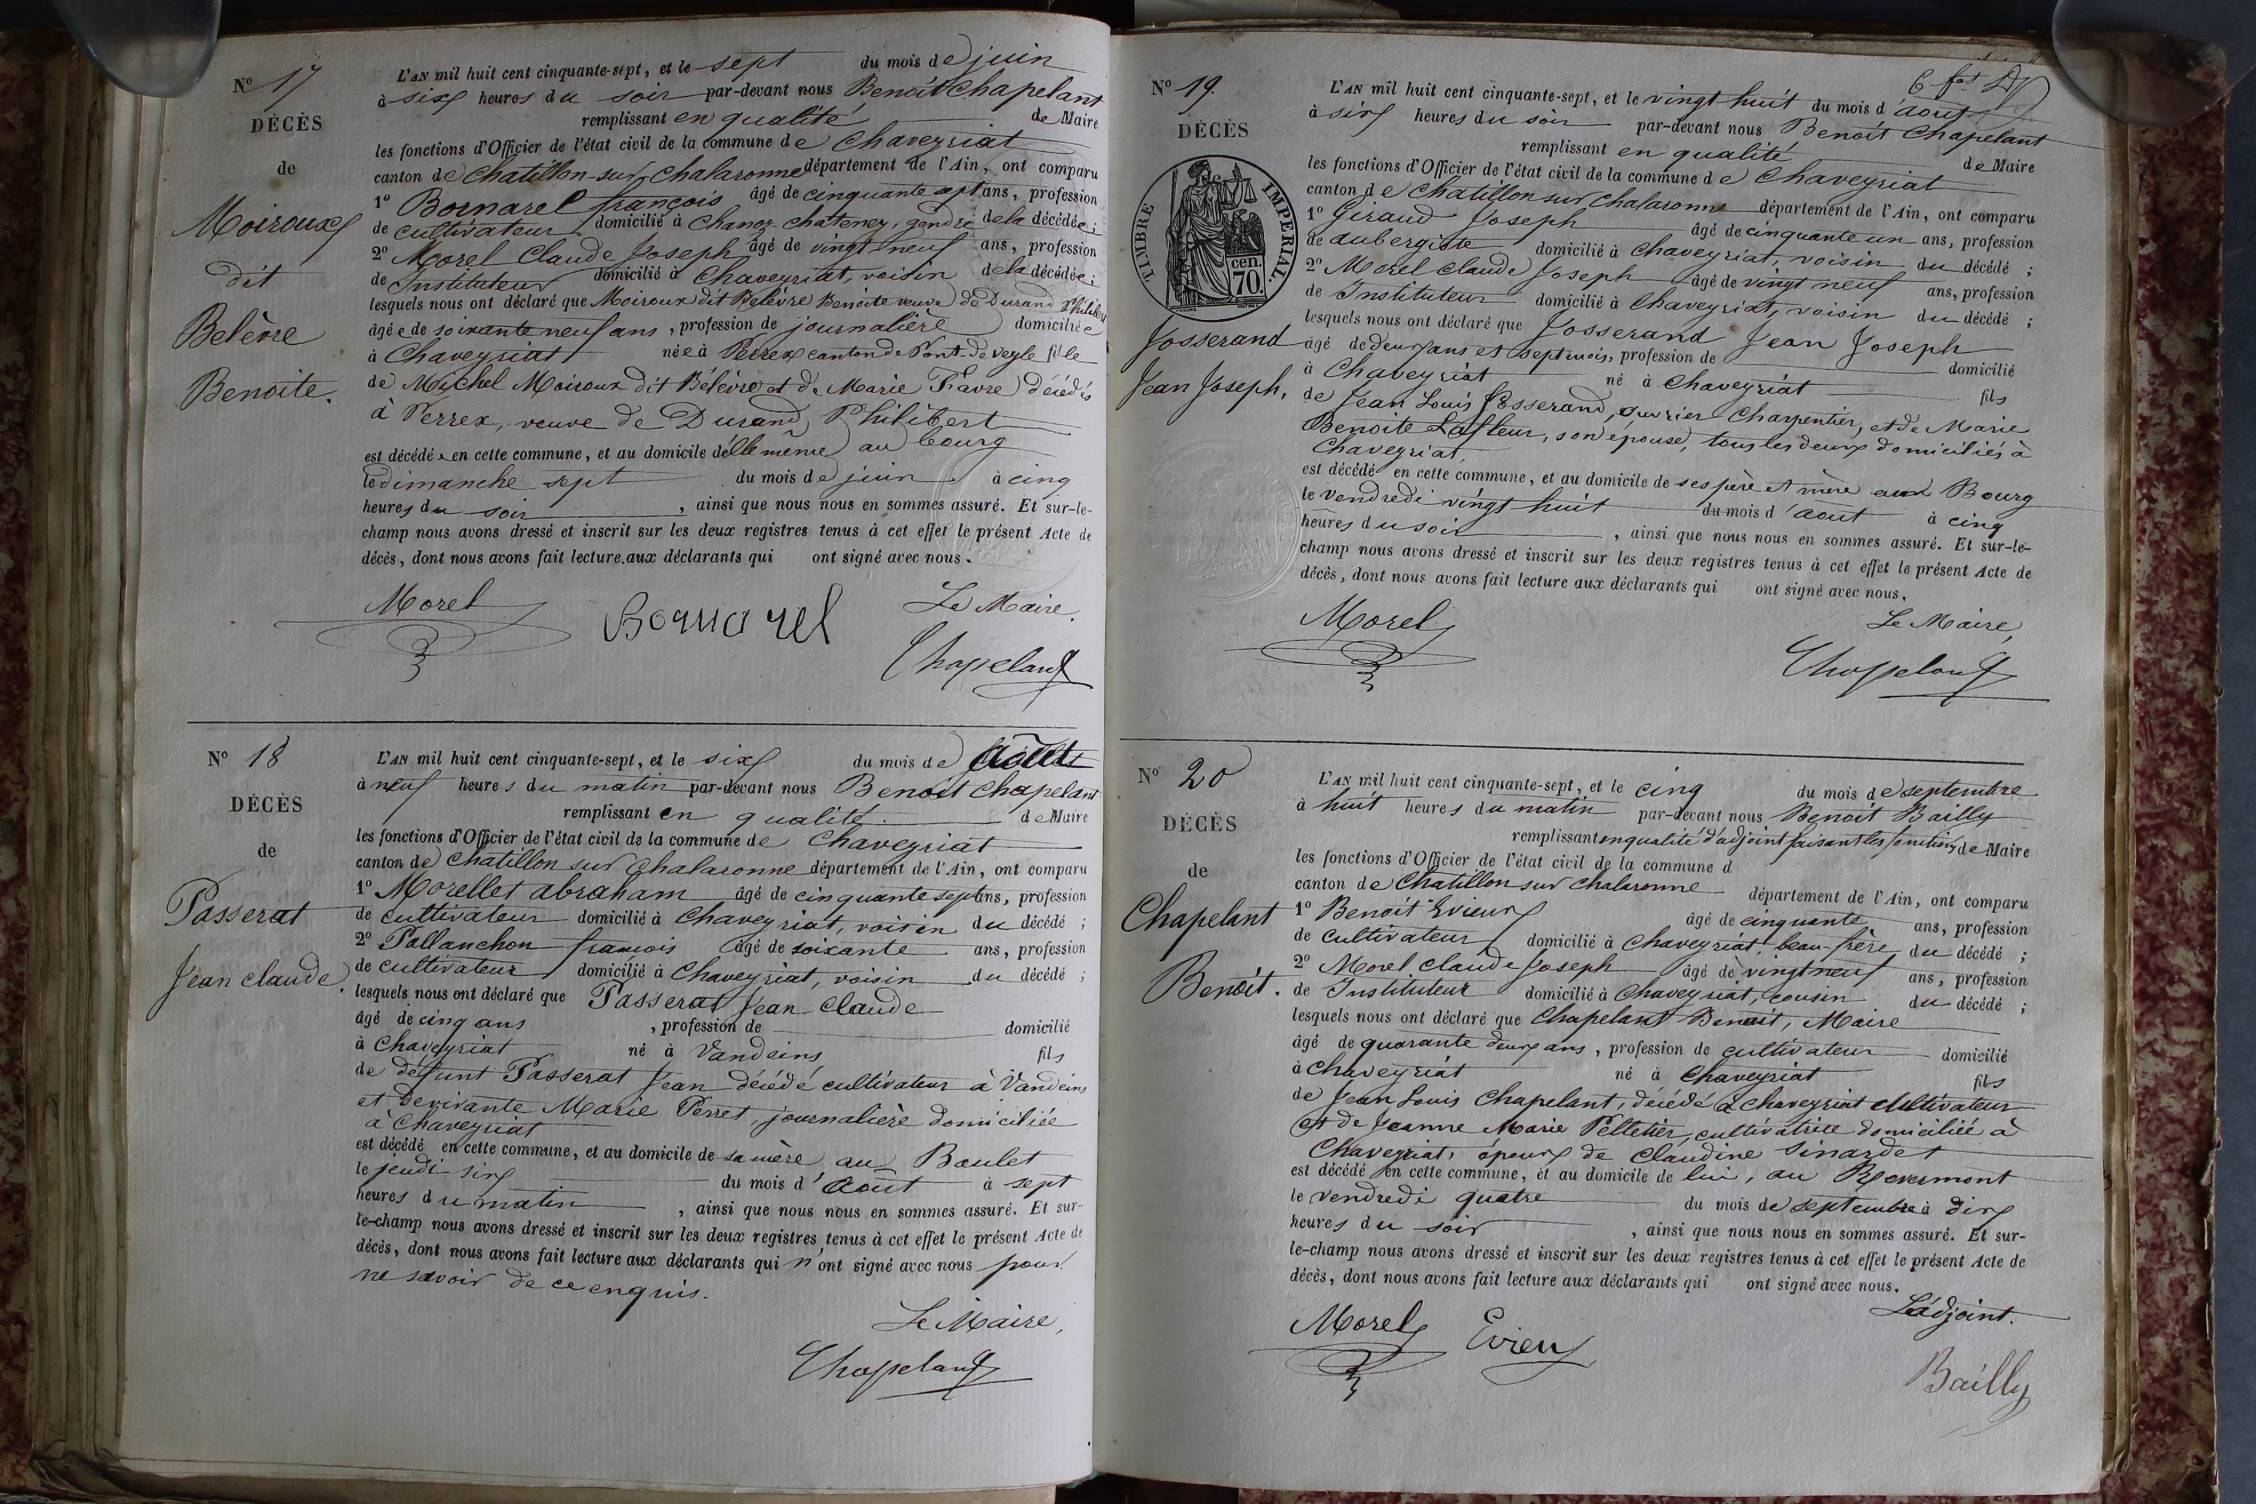 Nº 17
DÉCÈS
de
Moiroux
dit
Belèvre
Benoite.
L'AN mil huit cent cinquante-sept, et le sept du mois de juin
à six heures du soir par-devant nous Benoît Chapelant
remplissant en qualité de Maire
les fonctions d'Officier de l'état civil de la commune de Chaveyriat
canton de Chatillon-sur-Chalaronne département de l'Ain, ont comparu
1º Bornarel françois âgé de cinquante sept ans, profession
de cultivateur domicilié à Chanoz-chatenay, gendre de la décédée;
2º Morel Claude Joseph âgé de vingt neuf ans, profession
de Instituteur domicilié à Chaveyriat, voisin de la décédée;
lesquels nous ont déclaré que Moiroux dit Belèvre Benoite veuve de Durand Philibert
âgée de soixante neuf ans, profession de journalière domiciliée
à Chaveyriat née à Perrex canton de Pont-de-veyle fille
de Michel Moiroux dit Bélèvre et de Marie Favre décédés
à Perrex, veuve de Durand Philibert
est décédée en cette commune, et au domicile d'elle même au bourg
le dimanche sept du mois de juin à cinq
heures du soir, ainsi que nous nous en sommes assuré. Et sur-le-
champ nous avons dressé et inscrit sur les deux registres tenus à cet effet le présent Acte de
décès, dont nous avons fait lecture aux déclarants qui ont signé avec nous.
Morel Bornarel Le Maire,
Chapelant
Nº 18
DÉCÈS
de
Passerat
Jean claude.
L'AN mil huit cent cinquante-sept, et le six du mois de Août
à neuf heures du matin par-devant nous Benoît Chapelant
remplissant en qualité de Maire
les fonctions d'Officier de l'état civil de la commune de Chaveyriat
canton de Chatillon sur Chalaronne département de l'Ain, ont comparu
1º Morellet abraham âgé de cinquante sept ans, profession
de cultivateur domicilié à Chaveyriat, voisin du décédé;
2º Pallanchon francois âgé de soixante ans, profession
de cultivateur domicilié à Chaveyriat, voisin du décédé;
lesquels nous ont déclaré que Passerat Jean Claude
âgé de cinq ans, profession de domicilié
à Chaveyriat né à Vandeins fils
de defunt Passerat Jean décédé cultivateur à Vandeins
et de vivante Marie Perret, journalière domiciliée
à Chaveyriat
est décédé en cette commune, et au domicile de sa mère au Boulet
le jeudi six du mois d'Aout à sept
heures du matin, ainsi que nous nous en sommes assuré. Et sur-
le-champ nous avons dressé et inscrit sur les deux registres tenus à cet effet le présent Acte de
décès, dont nous avons fait lecture aux déclarants qui n'ont signé avec nous pour
ne savoir de ce enquis.
Le Maire,
Chapelant
Nº 19.
DÉCÈS
TIMBRE IMPERIAL.
70 cen.
Josserand
Jean Joseph.
L'AN mil huit cent cinquante-sept, et le vingt huit du mois d'août
à six heures du soir par-devant nous Benoît Chapelant
remplissant en qualité de Maire
les fonctions d'Officier de l'état civil de la commune de Chaveyriat
canton de Chatillon sur Chalaronne département de l'Ain, ont comparu
1º Giraud Joseph âgé de cinquante un ans, profession
de aubergiste domicilié à Chaveyriat, voisin du décédé;
2º Morel Claude Joseph âgé de vingt neuf ans, profession
de Instituteur domicilié à Chaveyriat, voisin du décédé;
lesquels nous ont déclaré que Josserand Jean Joseph
âgé de deux ans et sept mois, profession de domicilié
à Chaveyriat né à Chaveyriat fils
de Jean Louis Josserand, ouvrier Charpentier, et de Marie
Benoite Lafleur, son épouse, tous les deux domiciliés à
Chaveyriat
est décédé en cette commune, et au domicile de ses père et mère au Bourg
le vendredi vingt huit du mois d'aout à cinq
heures du soir, ainsi que nous nous en sommes assuré. Et sur-le-
champ nous avons dressé et inscrit sur les deux registres tenus à cet effet le présent Acte de
décès, dont nous avons fait lecture aux déclarants qui ont signé avec nous.
Morel Le Maire,
Chapelant
Nº 20
DÉCÈS
de
Chapelant
Benoît.
L'AN mil huit cent cinquante-sept, et le cinq du mois de septembre
à huit heures du matin par-devant nous Benoît Bailly
remplissant en qualité d'adjoint faisant les fonctions de Maire
les fonctions d'Officier de l'état civil de la commune d
canton de Chatillon sur Chalaronne département de l'Ain, ont comparu
1º Benoît Evieux âgé de cinquante ans, profession
de cultivateur domicilié à Chaveyriat, beau-frère du décédé;
2º Morel Claude Joseph âgé de vingt neuf ans, profession
de Instituteur domicilié à Chaveyriat, cousin du décédé;
lesquels nous ont déclaré que Chapelant Benoît, Maire
âgé de quarante deux ans, profession de cultivateur domicilié
à Chaveyriat né à Chaveyriat fils
de Jean Louis Chapelant, décédé à Chaveyriat cultivateur
et de Jeanne Marie Pelletier, cultivatrice domiciliée à
Chaveyriat, époux de Claudine Sinardet
est décédé en cette commune, et au domicile de lui, au Revermont
le vendredi quatre du mois de septembre à dix
heures du soir, ainsi que nous nous en sommes assuré. Et sur-
le-champ nous avons dressé et inscrit sur les deux registres tenus à cet effet le présent Acte de
décès, dont nous avons fait lecture aux déclarants qui ont signé avec nous.
Morel Evieux L'adjoint.
Bailly